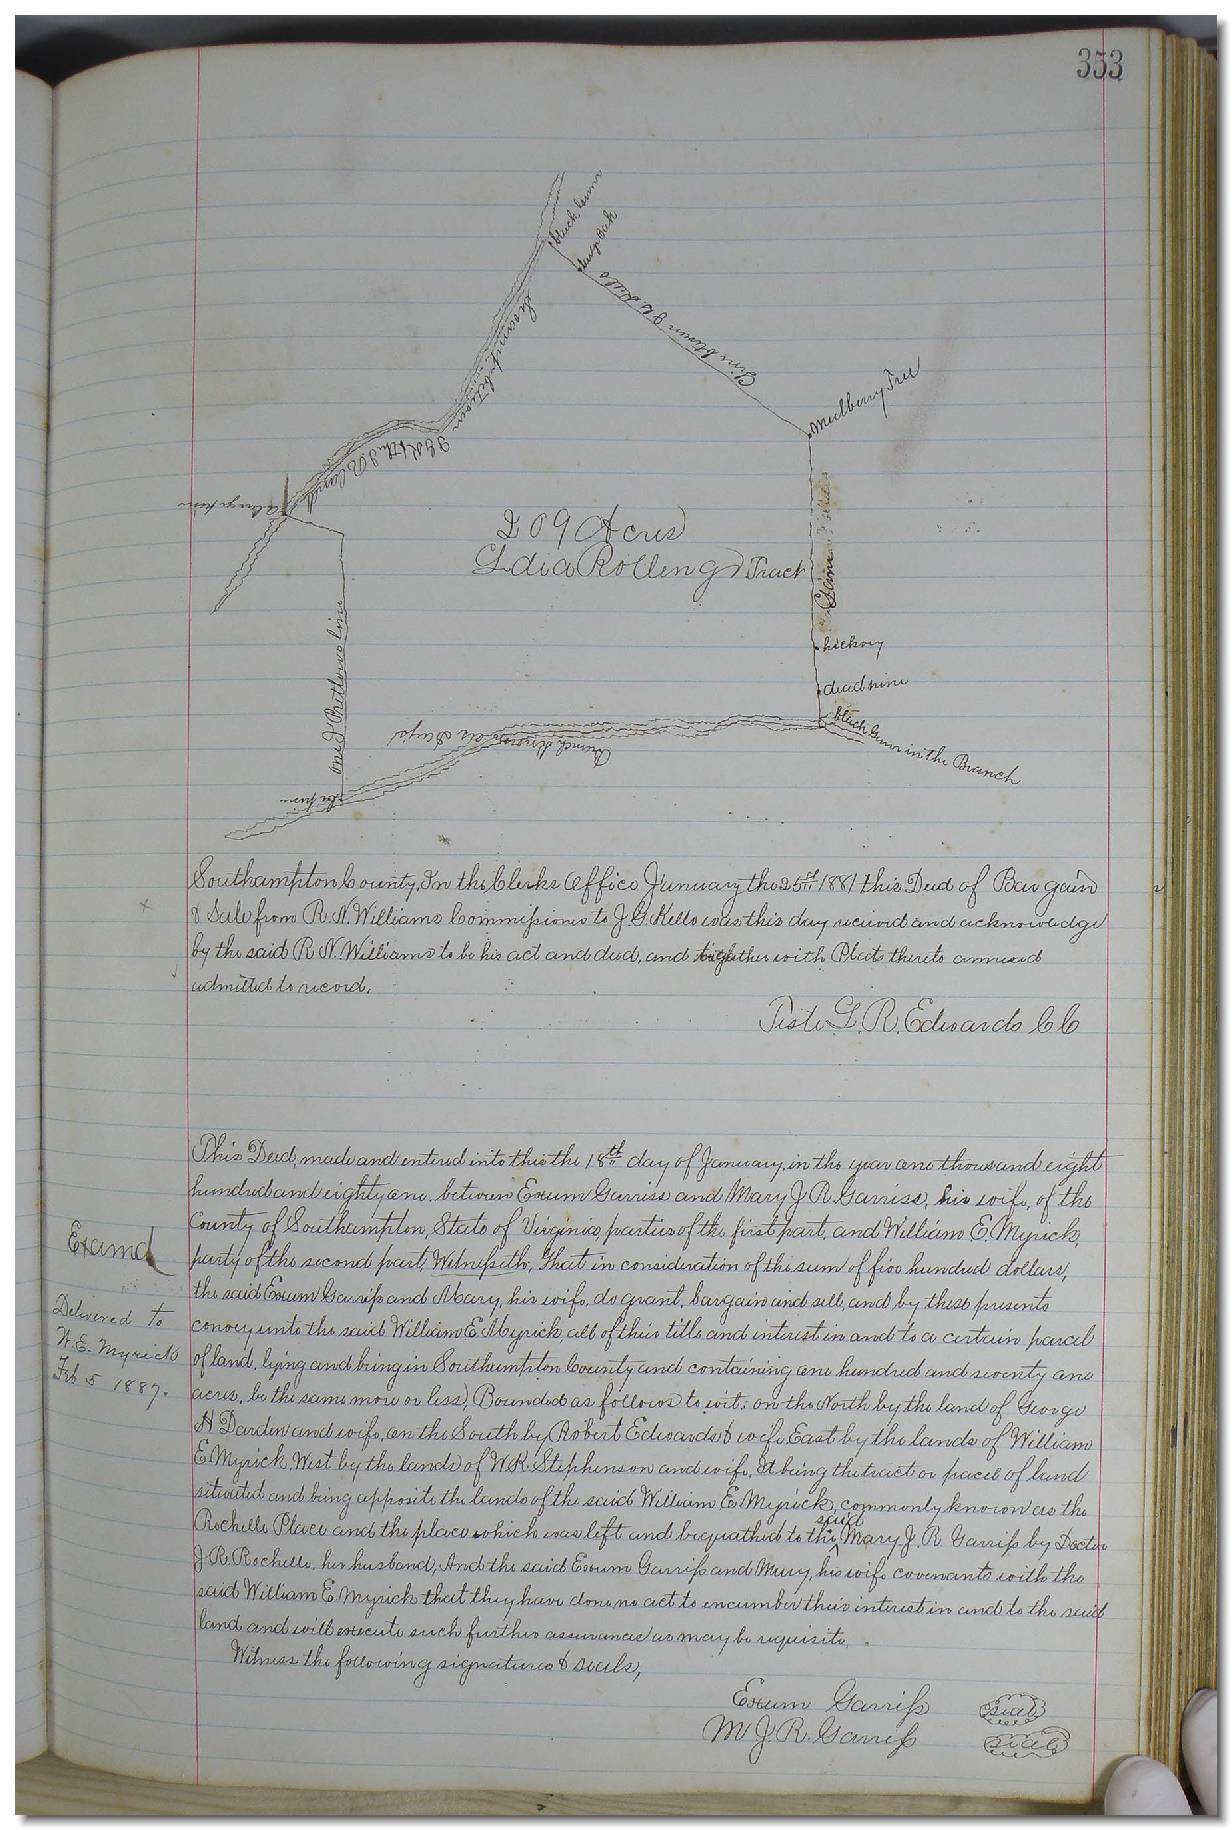 353
black Gum
large Oak
J G Kello
Swamp between
J G & the S R land
Mulberry Tree
209 Acres
Lidia Rollings Tract
hickory
dead pine
black Gum in the Branch
Branch known as
and J Pretlows line
Southampton County, In the Clerks Office January the 25th 1881 this Deed of Bargain
& Sale from R. N. Williams Commissioner to J. G. Kello was this day received and acknowledge
by the said R N. Williams to be his act and deed, and together with Plat thereto annexed
admitted to record.
Teste L. R. Edwards CC
This Deed, made and entered into this the 18th day of January, in the year one thousand eight
hundred and eighty one, between Exum Garriss and Mary J R Garriss, his wife, of the
County of Southampton, State of Virginia, parties of the first part, and William E Myrick,
Examd
party of the second part, Witnesseth, That in consideration of the sum of five hundred dollars,
the said Exum Garriss and Mary, his wife, do grant, bargain and sell, and by these presents
Delivered to
convey unto the said William E. Myrick, all of their title and interest in and to a certain parcel
W. E. Myrick
of land, lying and being in Southampton County and containing one hundred and seventy one
Feb 5 1887.
acres, be the same more or less, Bounded as follows to wit: on the North by the land of George
H Darden and wife, on the South by Robert Edwards & wife East by the lands of William
E Myrick West by the lands of W. K. Stephenson and wife, It being the tract or parcel of land
situated and being opposite the lands of the said William E Myrick, commonly known as the
Rochelle Place and the place which was left and bequathed to the said Mary J. R Garriss by Doctor
J. R. Rochelle, her husband, And the said Exum Garriss and Mary, his wife covenants with the
said William E Myrick that they have done no act to encumber their interest in and to the said
land and will execute such further assurances as may be requisite.
Witness the following signatures & seals,
Exum Garriss seal
M J. R. Garriss seal